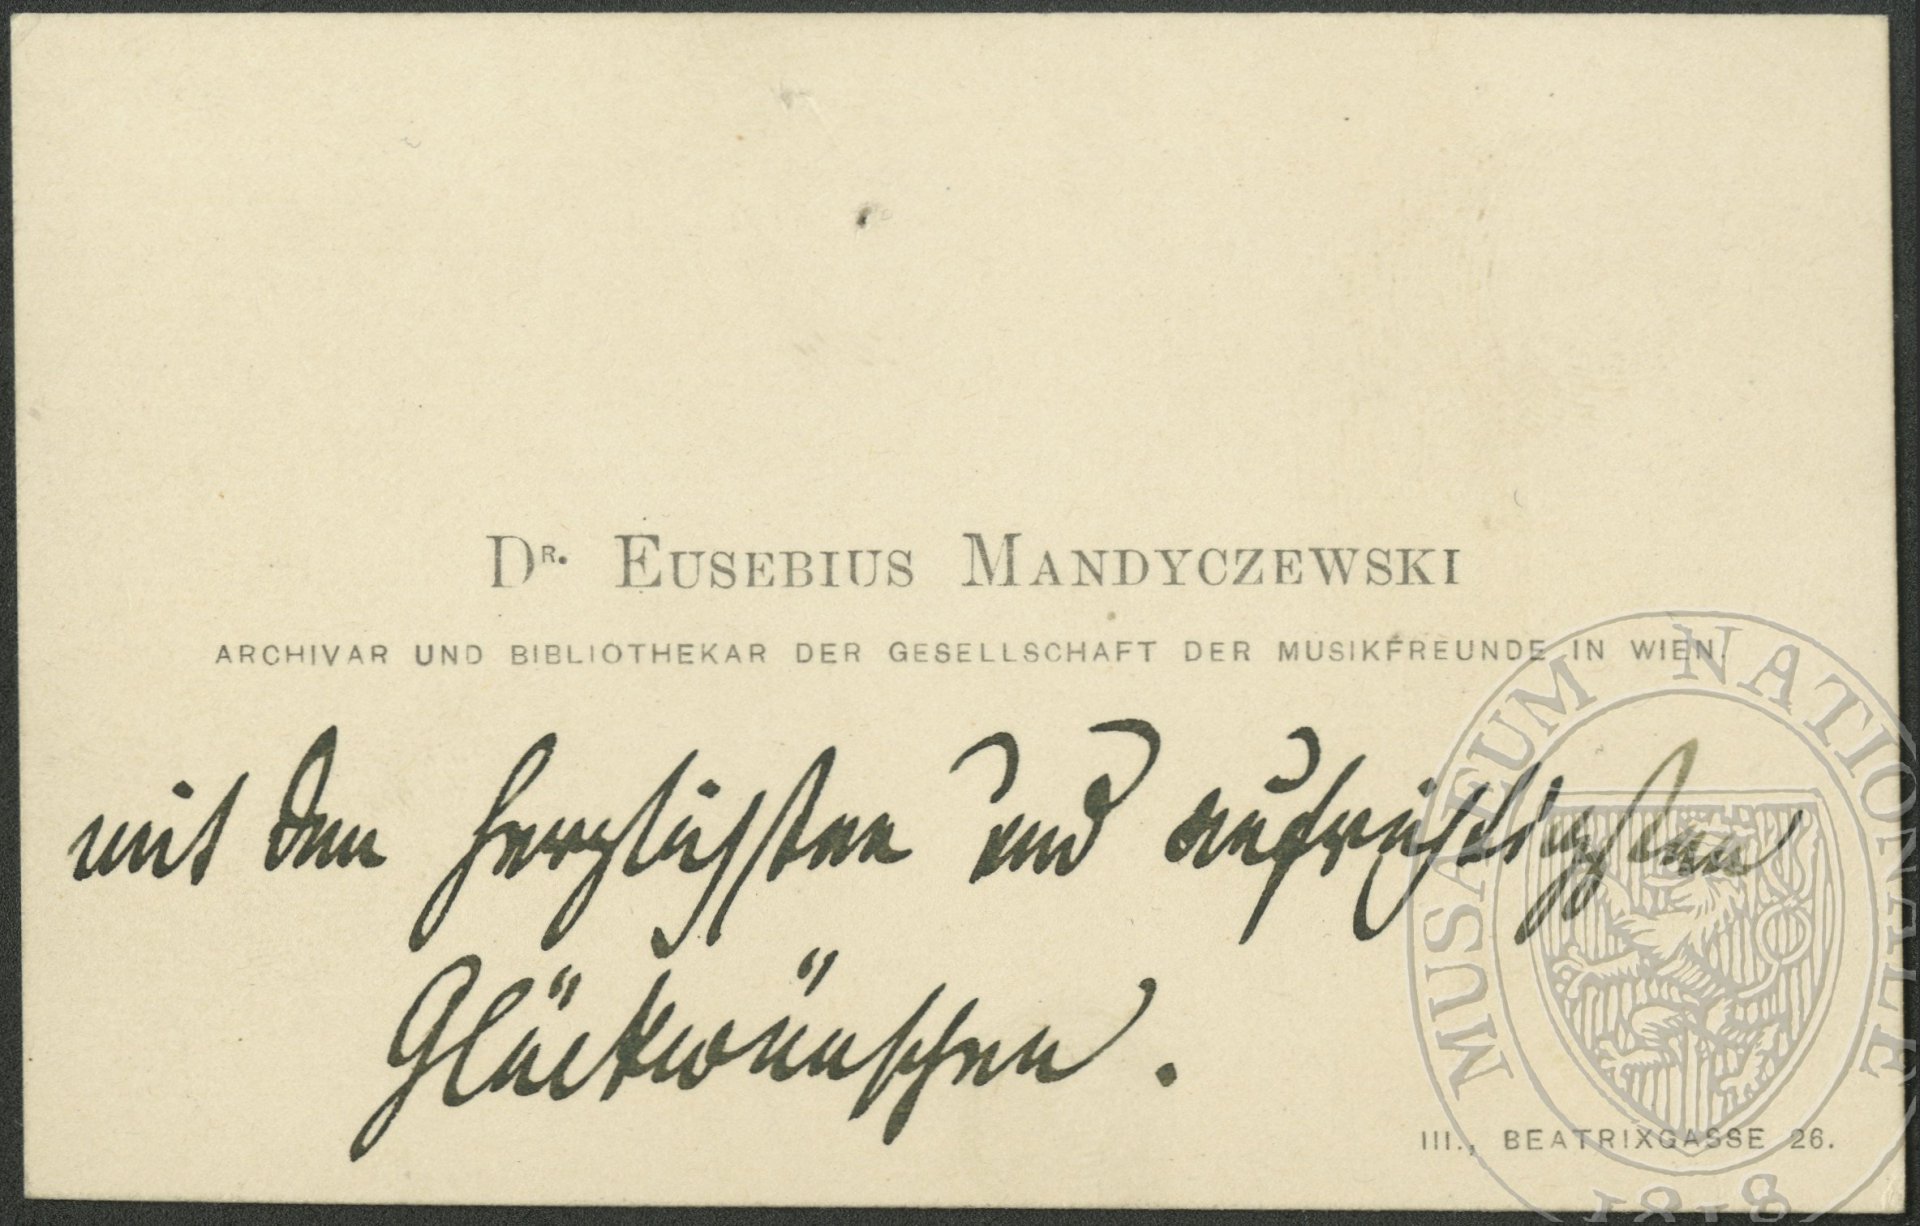 Dr. Eusebius Mandyczewski
ARCHIVAR UND BIBLIOTHEKAR DER GESELLSCHAFT DER MUSIKFREUNDE IN WIEN.
mit den herzlichsten und aufrichtigsten
Glückwünschen.
III., BEATRIXGASSE 26.
MUSAEUM NATIONALE
1818